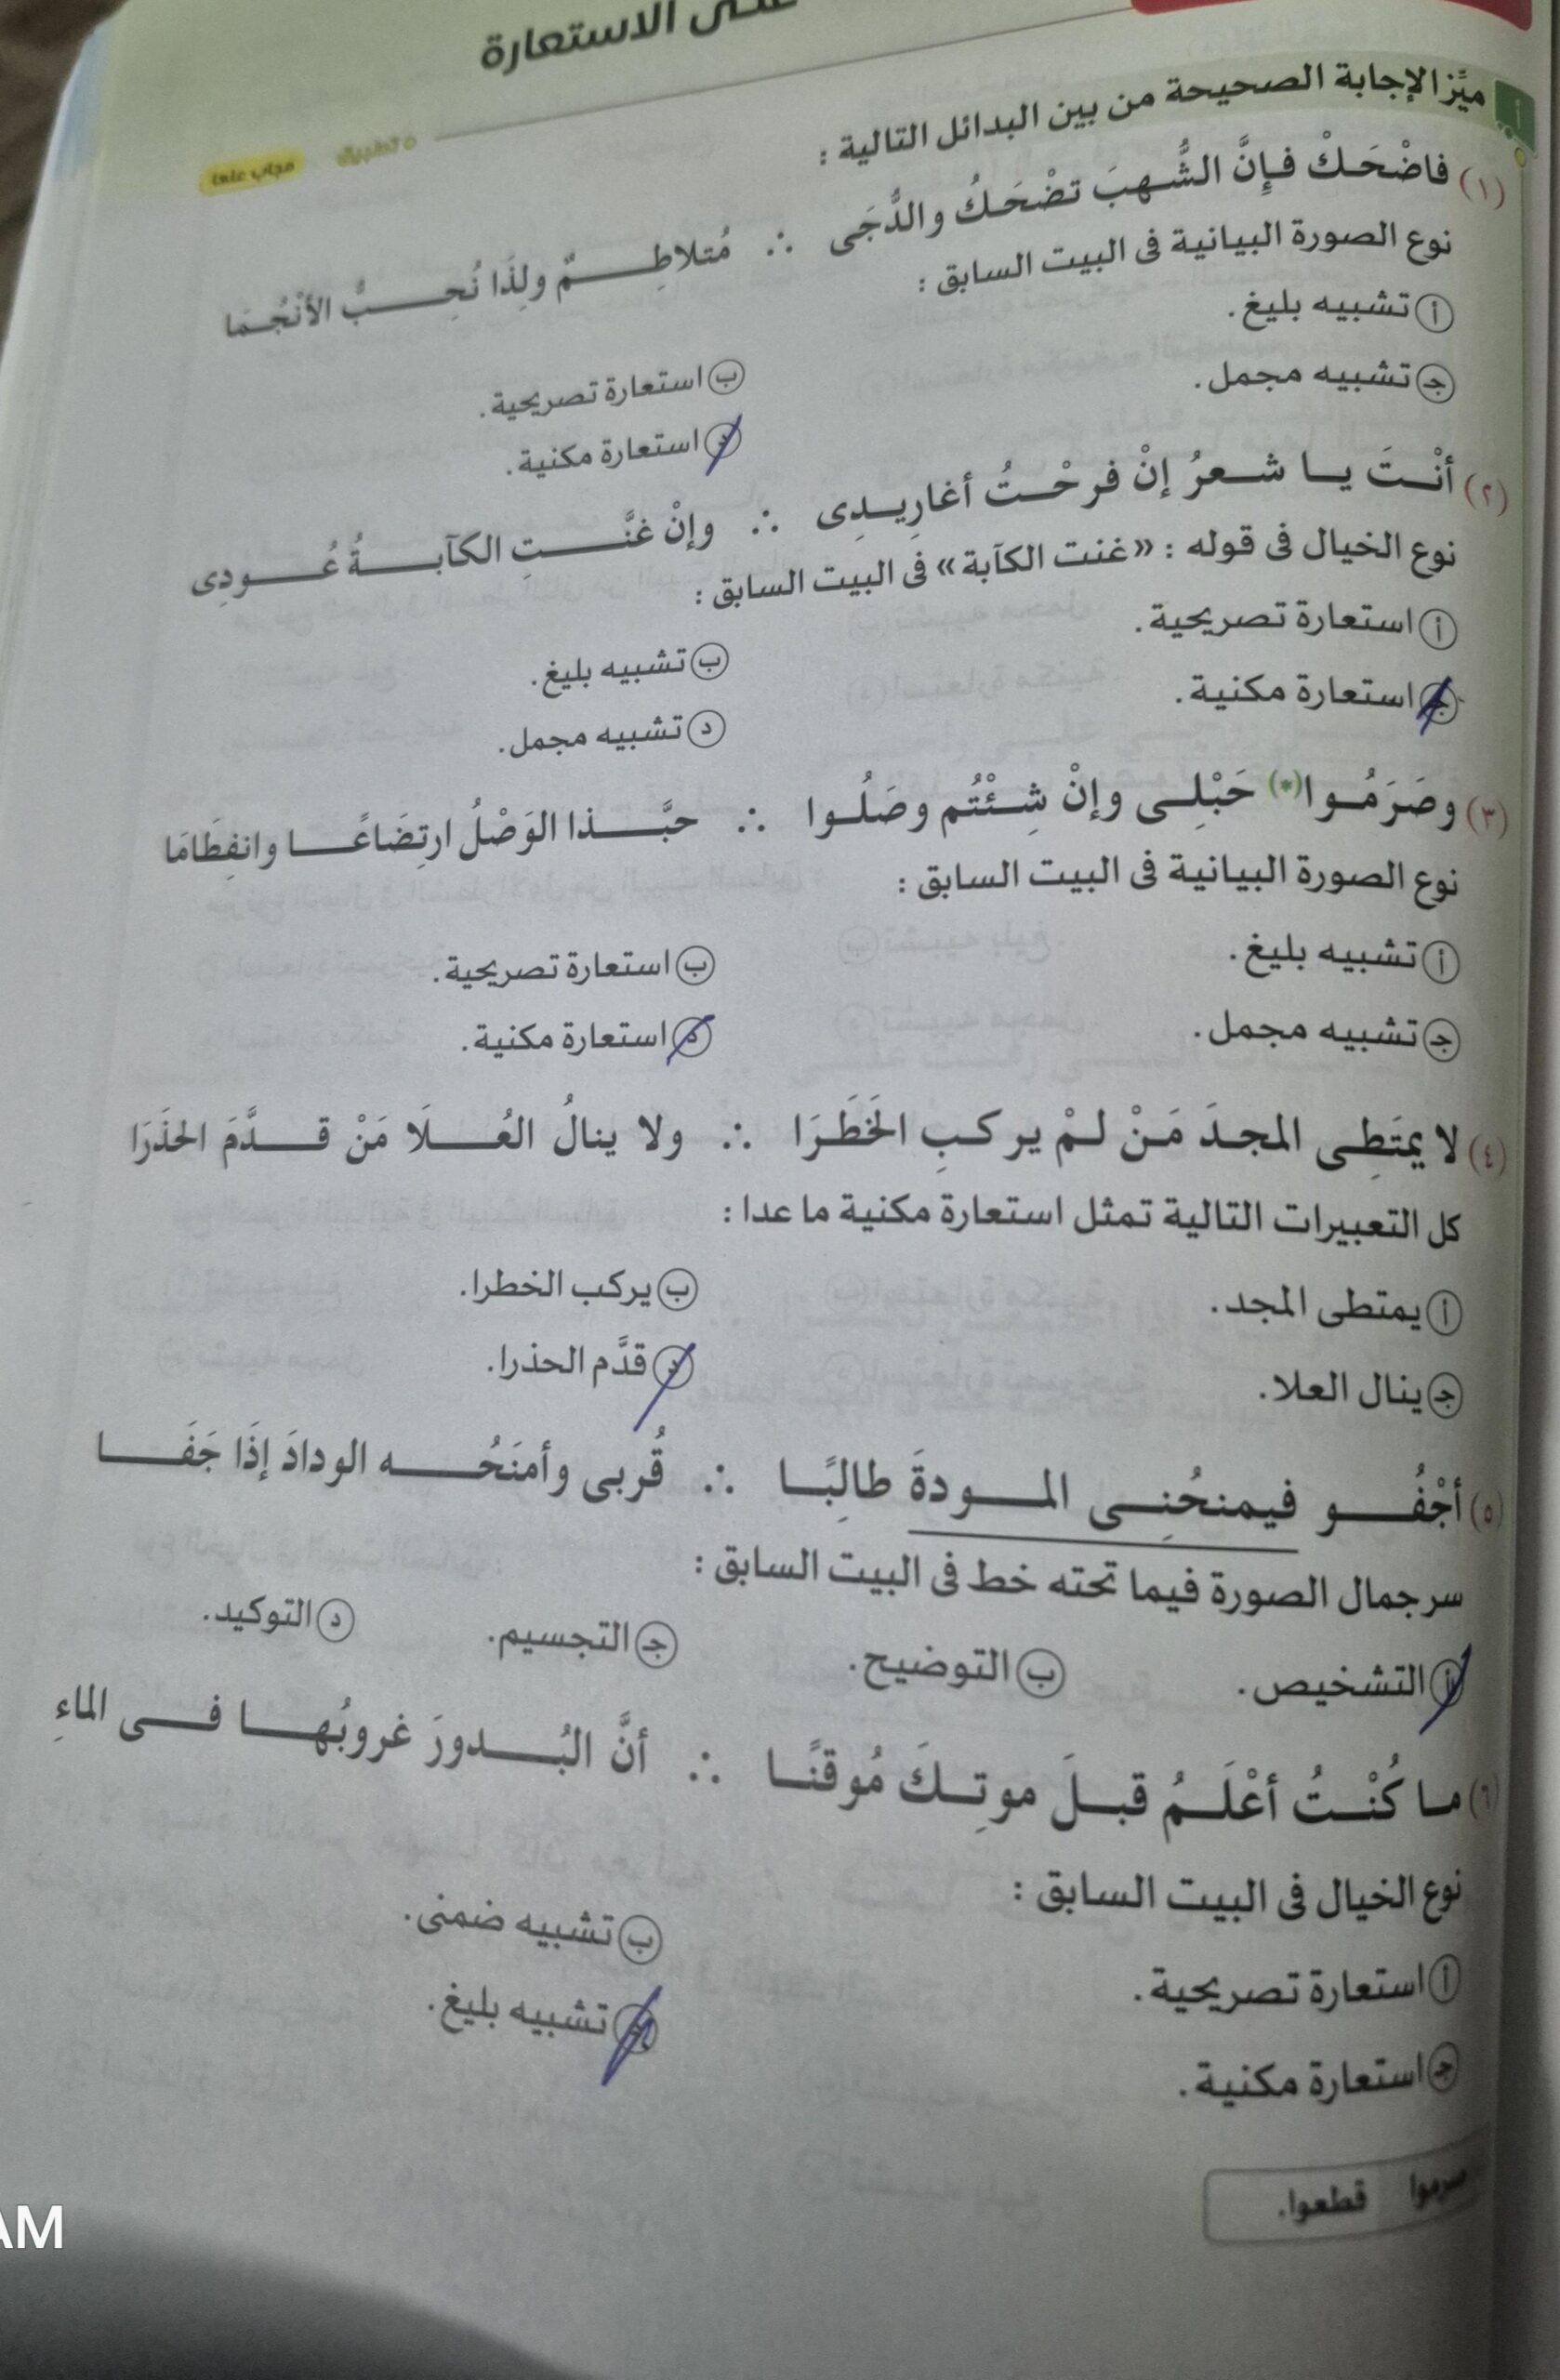 على الاستعارة
تطبيق مجاب عنها
أ ميِّز الإجابة الصحيحة من بين البدائل التالية :
(١) فاضْحَكْ فإِنَّ الشُّهبَ تضْحَكُ والدُّجَى ∴ مُتلاطِمٌ ولِذَا نُحِبُّ الأَنْجُمَا
نوع الصورة البيانية فى البيت السابق :
أ تشبيه بليغ. ب استعارة تصريحية.
جـ تشبيه مجمل. د استعارة مكنية.
(٢) أنْتَ يا شعرُ إنْ فرحْتُ أغارِيدِى ∴ وإنْ غنَّتِ الكآبةُ عُودِى
نوع الخيال فى قوله : «غنت الكآبة» فى البيت السابق :
أ استعارة تصريحية. ب تشبيه بليغ.
جـ استعارة مكنية. د تشبيه مجمل.
(٣) وصَرَمُوا(*) حَبْلِى وإنْ شِئْتُم وصَلُوا ∴ حبَّذا الوَصْلُ ارتِضَاعًا وانفِطَامَا
نوع الصورة البيانية فى البيت السابق :
أ تشبيه بليغ. ب استعارة تصريحية.
جـ تشبيه مجمل. د استعارة مكنية.
(٤) لا يمتَطِى المجدَ مَنْ لمْ يركبِ الخَطَرَا ∴ ولا ينالُ العُلَا مَنْ قدَّمَ الحذَرَا
كل التعبيرات التالية تمثل استعارة مكنية ما عدا :
أ يمتطى المجد. ب يركب الخطرا.
جـ ينال العلا. د قدَّم الحذرا.
(٥) أجْفُو فيمنحُنِى المودةَ طالِبًا ∴ قُربى وأمنَحُه الودادَ إذَا جَفَا
سر جمال الصورة فيما تحته خط فى البيت السابق :
أ التشخيص. ب التوضيح. جـ التجسيم. د التوكيد.
(٦) ما كُنْتُ أعْلَمُ قبلَ موتِكَ مُوقنًا ∴ أنَّ البُدورَ غروبُها فى الماءِ
نوع الخيال فى البيت السابق :
أ استعارة تصريحية. ب تشبيه ضمنى.
جـ استعارة مكنية. د تشبيه بليغ.
صرموا قطعوا.
AM